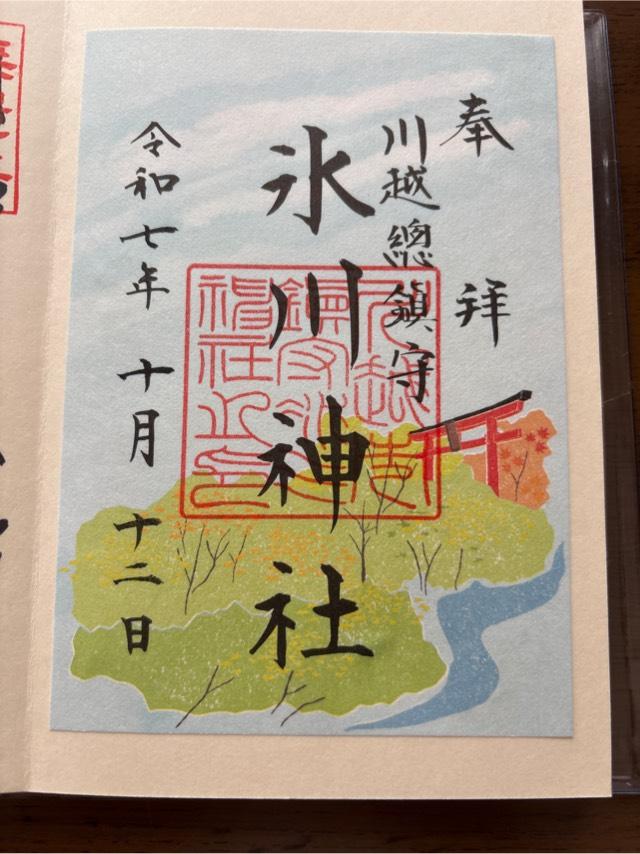 奉拝
川越總鎮守
氷川神社
令和七年十月十二日